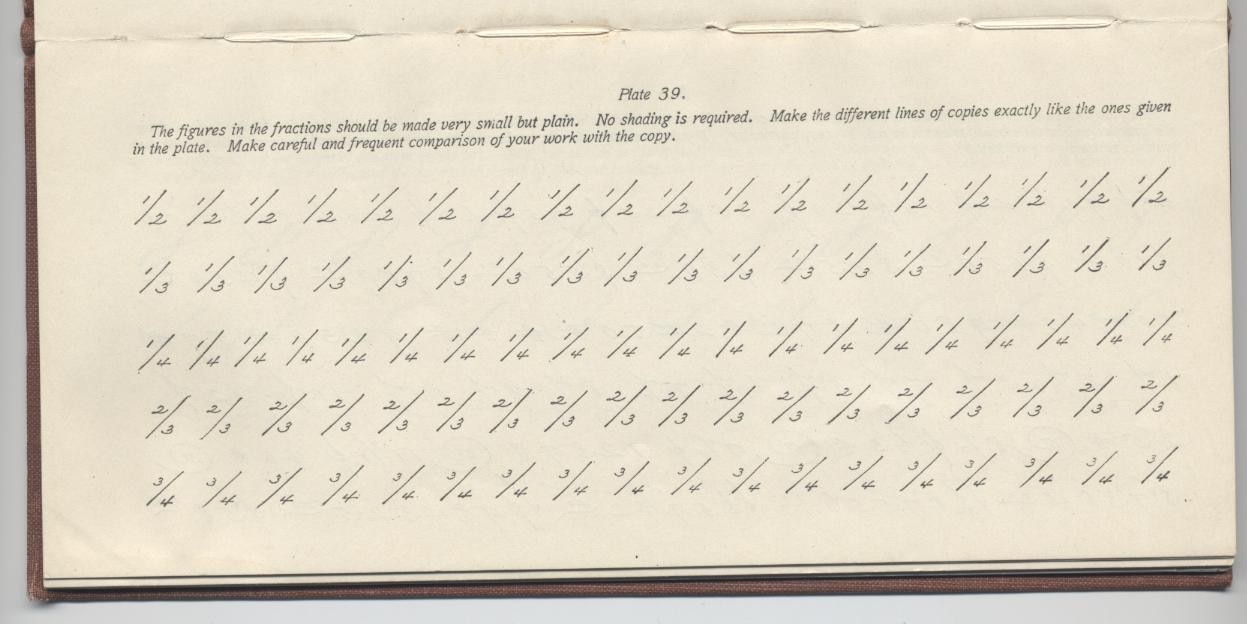 Plate 39.
The figures in the fractions should be made very small but plain. No shading is required. Make the different lines of copies exactly like the ones given
in the plate. Make careful and frequent comparison of your work with the copy.
1/2 1/2 1/2 1/2 1/2 1/2 1/2 1/2 1/2 1/2 1/2 1/2 1/2 1/2 1/2 1/2 1/2 1/2
1/3 1/3 1/3 1/3 1/3 1/3 1/3 1/3 1/3 1/3 1/3 1/3 1/3 1/3 1/3 1/3 1/3 1/3
1/4 1/4 1/4 1/4 1/4 1/4 1/4 1/4 1/4 1/4 1/4 1/4 1/4 1/4 1/4 1/4 1/4 1/4 1/4 1/4
2/3 2/3 2/3 2/3 2/3 2/3 2/3 2/3 2/3 2/3 2/3 2/3 2/3 2/3 2/3 2/3 2/3 2/3
3/4 3/4 3/4 3/4 3/4 3/4 3/4 3/4 3/4 3/4 3/4 3/4 3/4 3/4 3/4 3/4 3/4 3/4